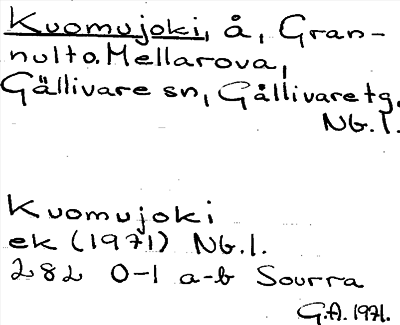 Kuomujoki, å, Gran-
nulto. Mellarova,
Gällivare sn, Gällivare tg.
Nb. l.
Kuomujoki
ek (1971) Nb.l.
282 0-1 a-b Sourra
G.A. 1971.